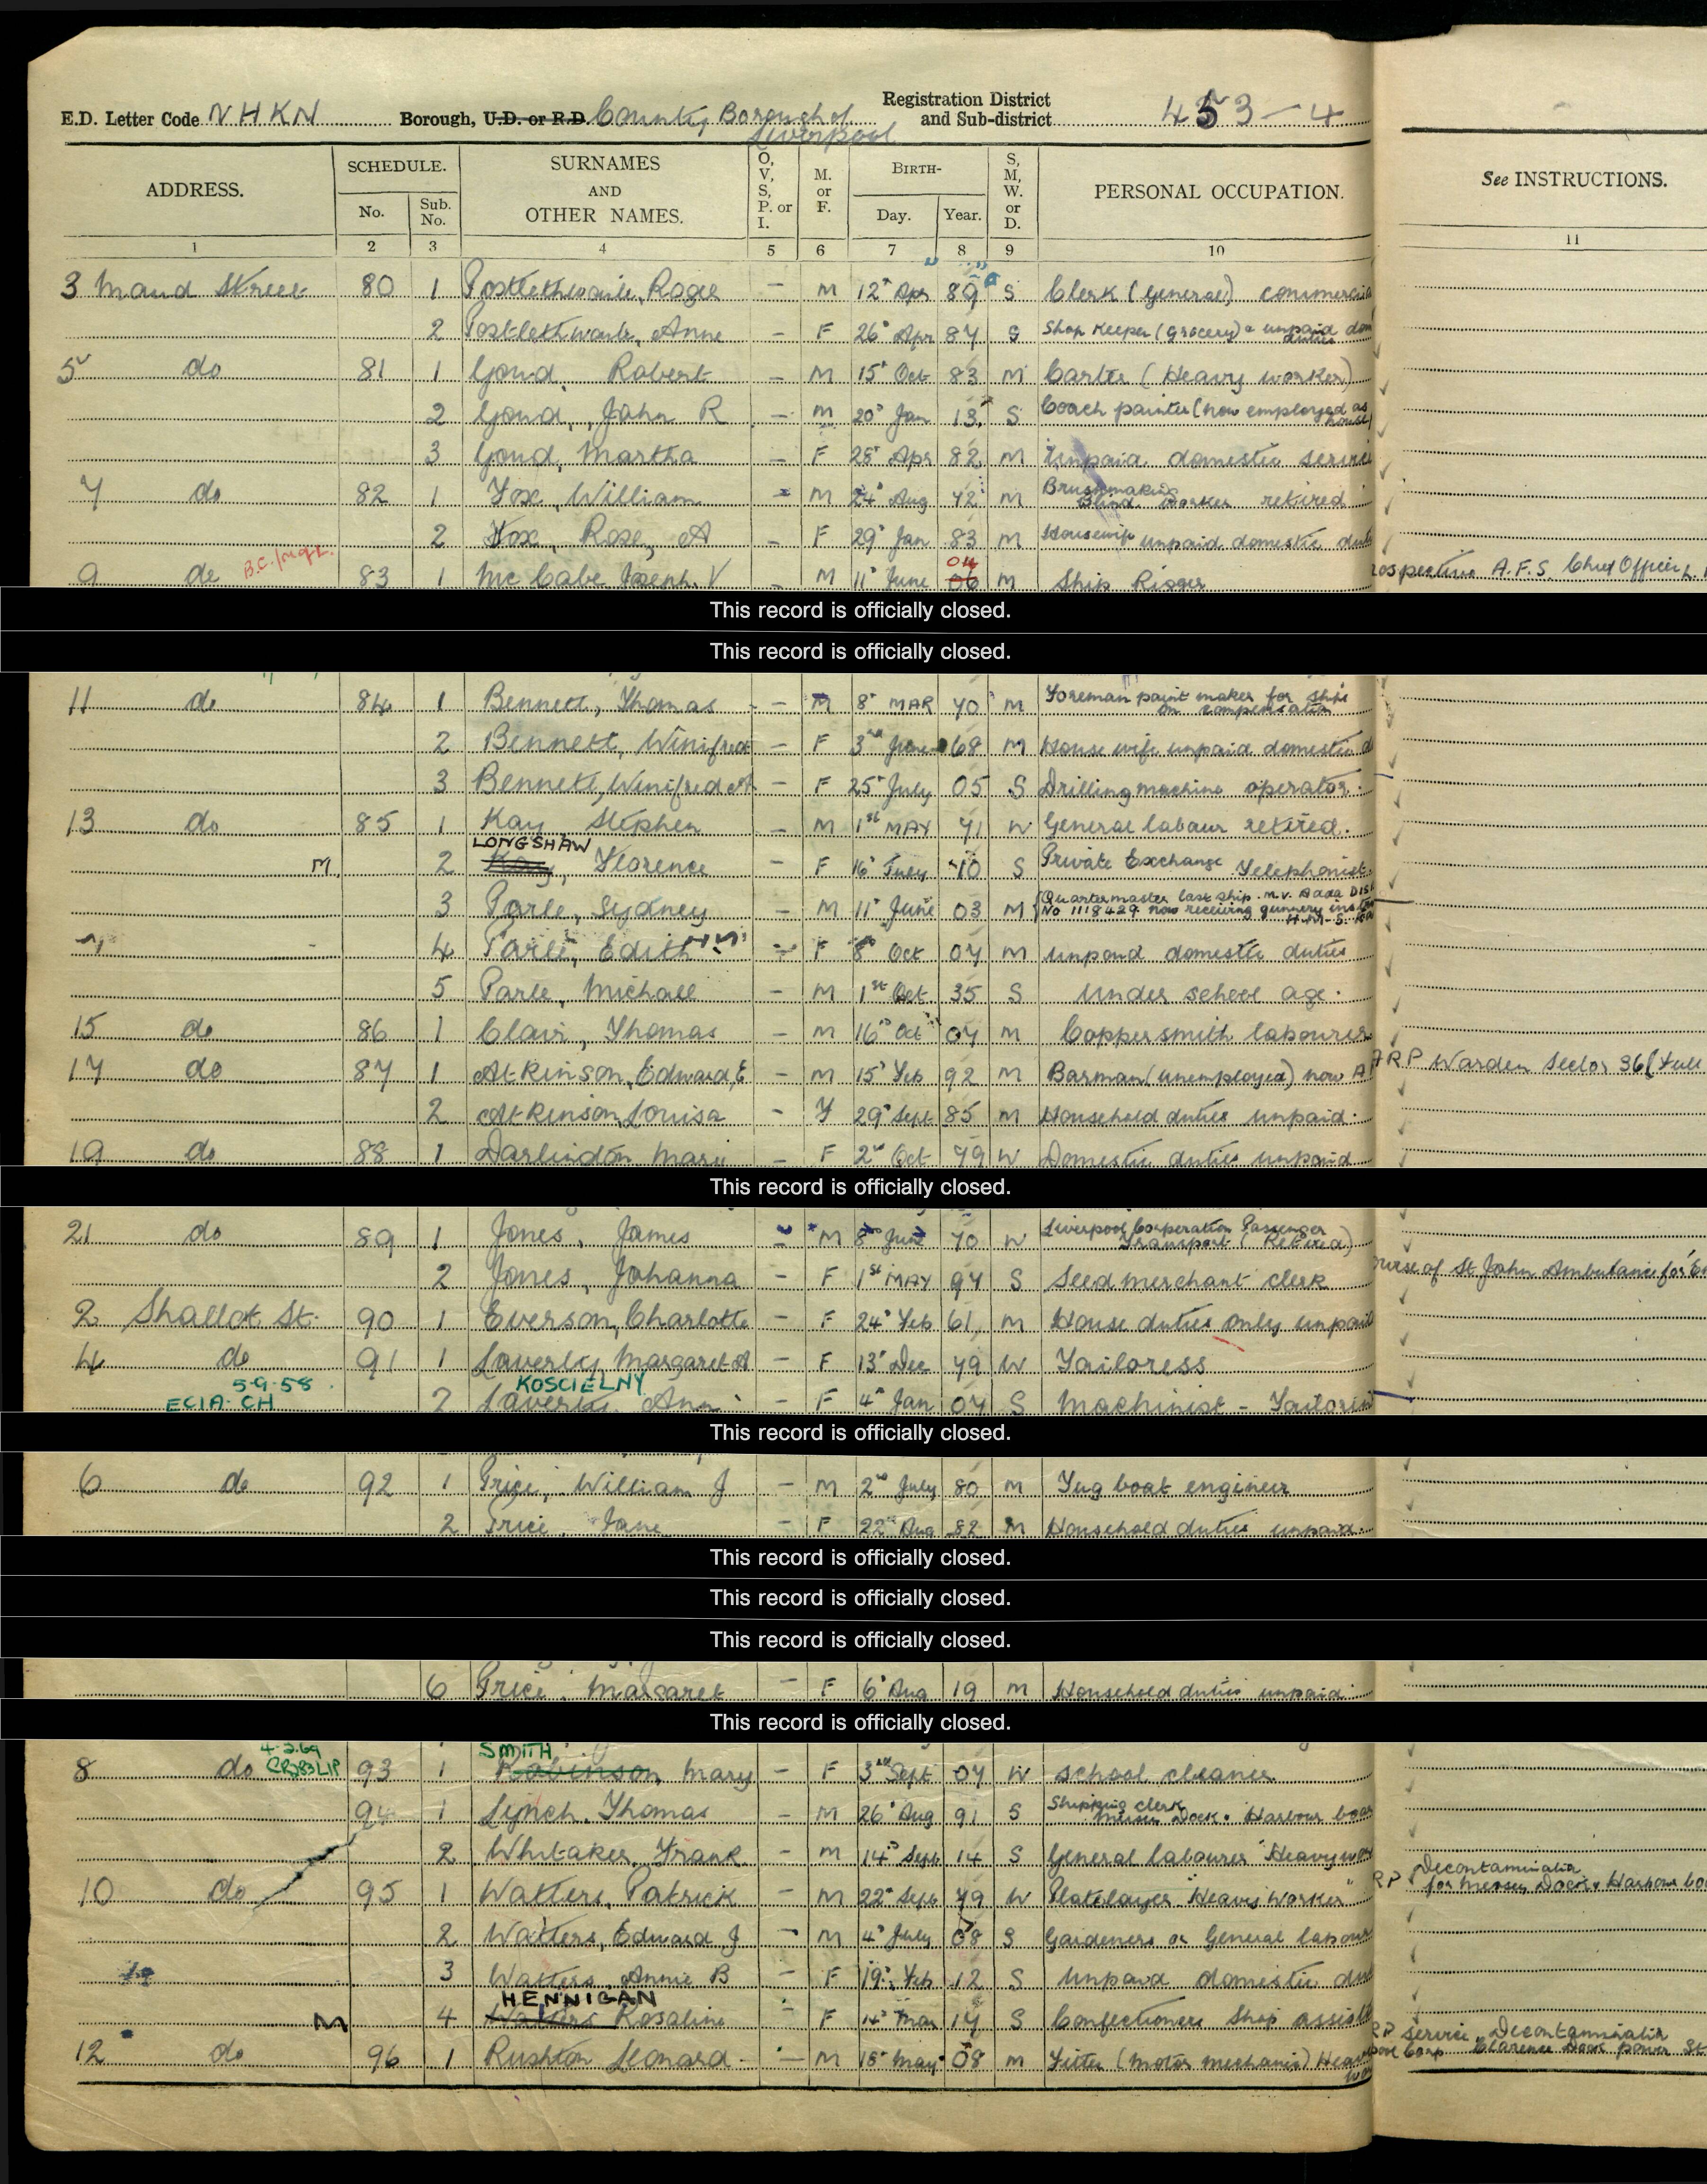 E.D. Letter Code NHKN Borough, U.D. or R.D. County Borough of Liverpool Registration District and Sub-district 453-4
ADDRESS. SCHEDULE. No. Sub. No. SURNAMES AND OTHER NAMES. O, V, S, P. or I. M. or F. BIRTH- Day. Year. S, M, W. or D. PERSONAL OCCUPATION. See INSTRUCTIONS.
1 2 3 4 5 6 7 8 9 10 11
3 Maud Street 80 1 Postlethwaite, Roger - M 12" Apr 89 S Clerk (General) commercia
2 Postlethwaite, Anne - F 26" Apr 87 S Shop Keeper (Grocery) & unpaid dom duties
5 do 81 1 Goud, Robert - M 15" Oct 83 M Carter (Heavy worker)
2 Goud, John R - M 20" Jan 13 S Coach painter (now employed as house)
3 Goud, Martha - F 28" Apr 82 M Unpaid domestic servic
7 do 82 1 Fox, William - M 24" Aug 72 M Brushmaking Blind Worker retired
2 Fox, Rose, A - F 29" Jan 83 M Housewife unpaid domestic duti
9 do 83 1 McCabe Joseph. V - M 11" June 06 04 M Ship Rigger A.F.S. Chief Officer
This record is officially closed.
This record is officially closed.
11 do 84 1 Bennett, Thomas - M 8" MAR 70 M Foreman paint maker for ships on compensation
2 Bennett, Winifred - F 3rd June 68 M House wife unpaid domestic d
3 Bennett, Winifred A - F 25" July 05 S Drilling machine operator.
13 do 85 1 Kay Stephen - M 1st MAY 71 W General labour retired.
LONGSHAW
M 2 Kay, Florence - F 16" July 10 S Private Exchange Telephonist.
3 Parle, Sydney - M 11" June 03 M Quartermaster last ship. m.v. Adda Dis No 1118429 now receiving gunnery ins H.M.S.
4 Parle, Edith - F 8" Oct 07 M unpaid domestic duties
5 Parle, Michael - M 1st Oct 35 S Under school age.
15 do 86 1 Clair, Thomas - M 16" Oct 07 M Coppersmith labourer
17 do 87 1 Atkinson, Edward, E - M 15" Feb 92 M Barman (unemployed) now A ARP Warden Sector 36 (Full
2 Atkinson Louisa - F 29" Sept 85 M Household duties unpaid.
19 do 88 1 Darlindon Mary - F 2nd Oct 79 W Domestic duties unpaid
This record is officially closed.
21 do 89 1 Jones, James - M 8" June 70 W Liverpool Corperation Passenger Transport (Retired)
2 Jones, Johanna - F 1st MAY 97 S Seed merchant clerk ourse of St John Ambulance for
2 Shallot St. 90 1 Everson, Charlotte - F 24" Feb 61 M House duties only unpaid
4 do 91 1 Laverty Margaret A - F 13" Dec 79 W Tailoress
5-9-58 KOSCIELNY
ECIA-CH 2 Laverty Ann - F 4" Jan 07 S Machinist - Tailorin
This record is officially closed.
6 do 92 1 Price, William J - M 2nd July 80 M Tug boat engineer
2 Price, Jane - F 22" Aug 82 M Household duties unpaid.
This record is officially closed.
This record is officially closed.
This record is officially closed.
6 Price, Margaret - F 6" Aug 19 M Household duties unpaid
This record is officially closed.
4-2-69 SMITH
8 do 93 1 Robinson, Mary - F 3rd Sept 07 W School cleaner
94 1 Lynch, Thomas - M 26" Aug 91 S Shipping clerk Mersey Dock & Harbour boar
2 Whitaker, Frank - M 14" Sept 14 S General labourer "Heavy wor
10 do 95 1 Watters, Patrick - M 22" Sept 79 W Platelayer "Heavy Worker" RP Decontamination for Mersey Docks & Harbour bo
2 Watters, Edward J - M 4" July 08 S Gardeners or General labour
3 Watters, Annie B - F 19" Feb 12 S Unpaid domestic dut
HENNIGAN
M 4 Watters Rosaline - F 14" Mar 17 S Confectioners Shop assist
12 do 96 1 Rushton Leonard - M 18" May 08 M Fitter (motor mechanic) Heavy wor RP Service Decontamination Corp Clarence Dock power St